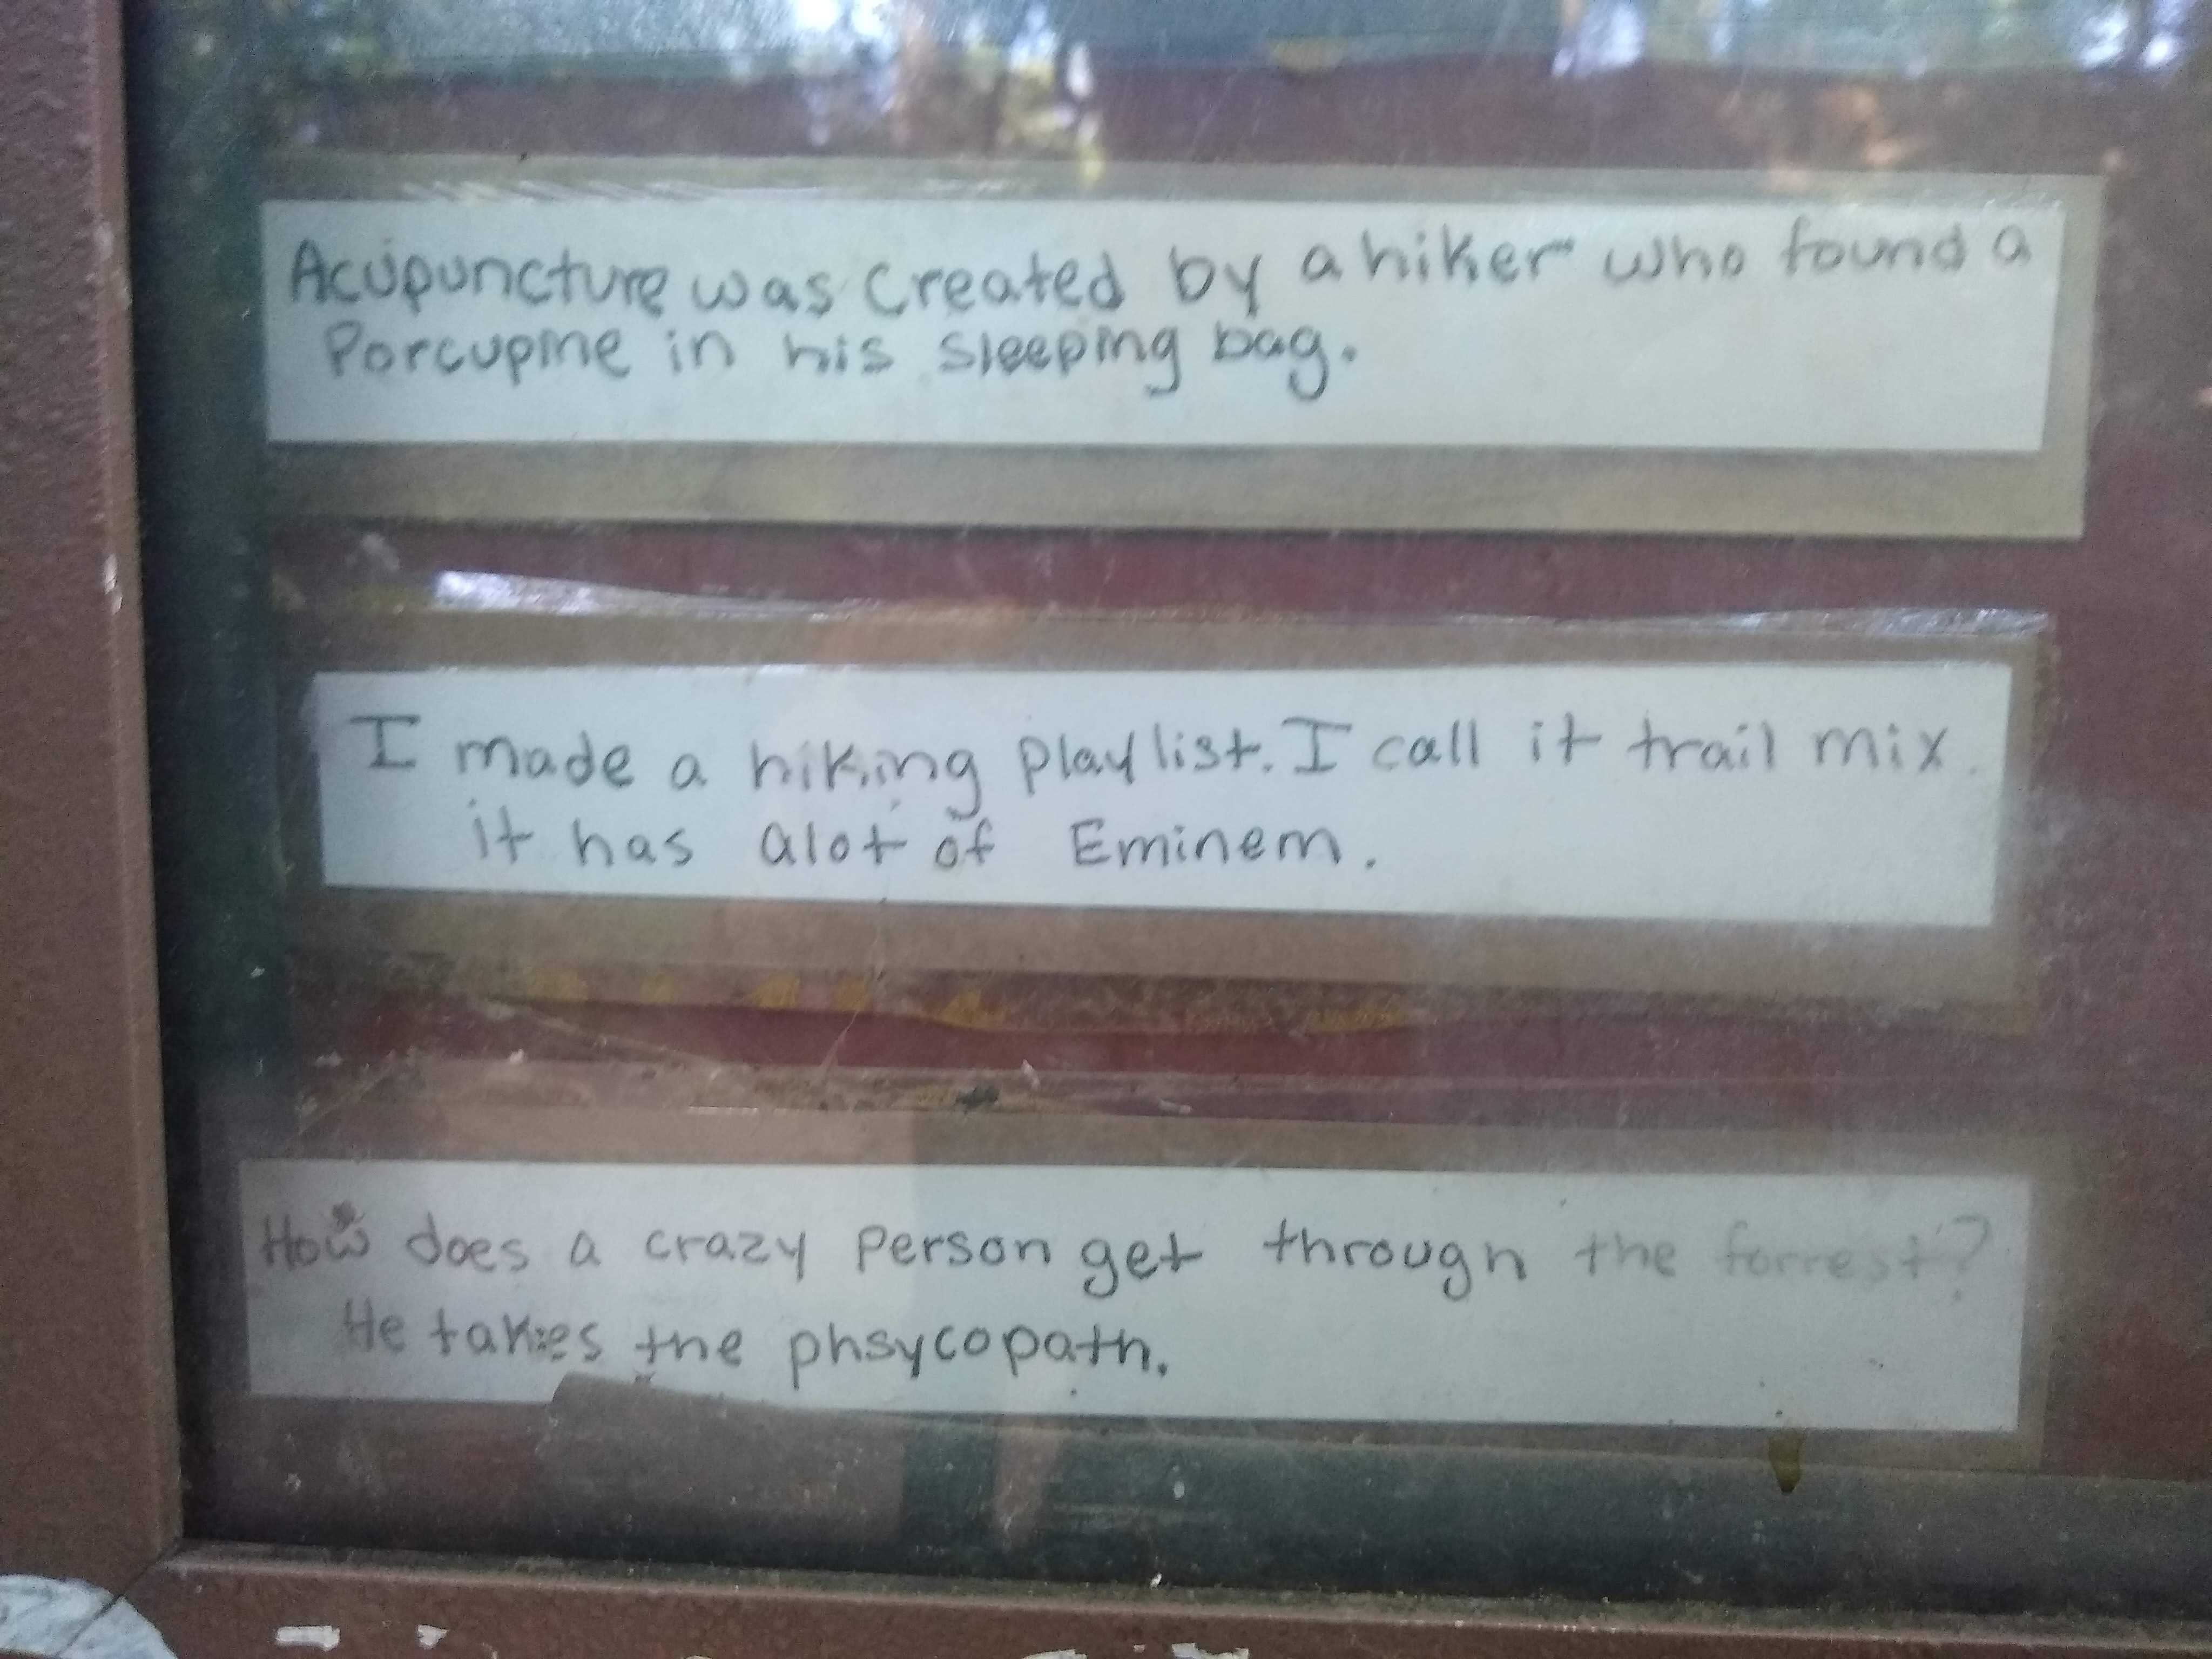 Acupuncture was created by a hiker who found a
Porcupine in his sleeping bag.
I made a hiking playlist. I call it trail mix.
it has alot of Eminem.
How does a crazy person get through the forrest?
He takes the phsycopath.